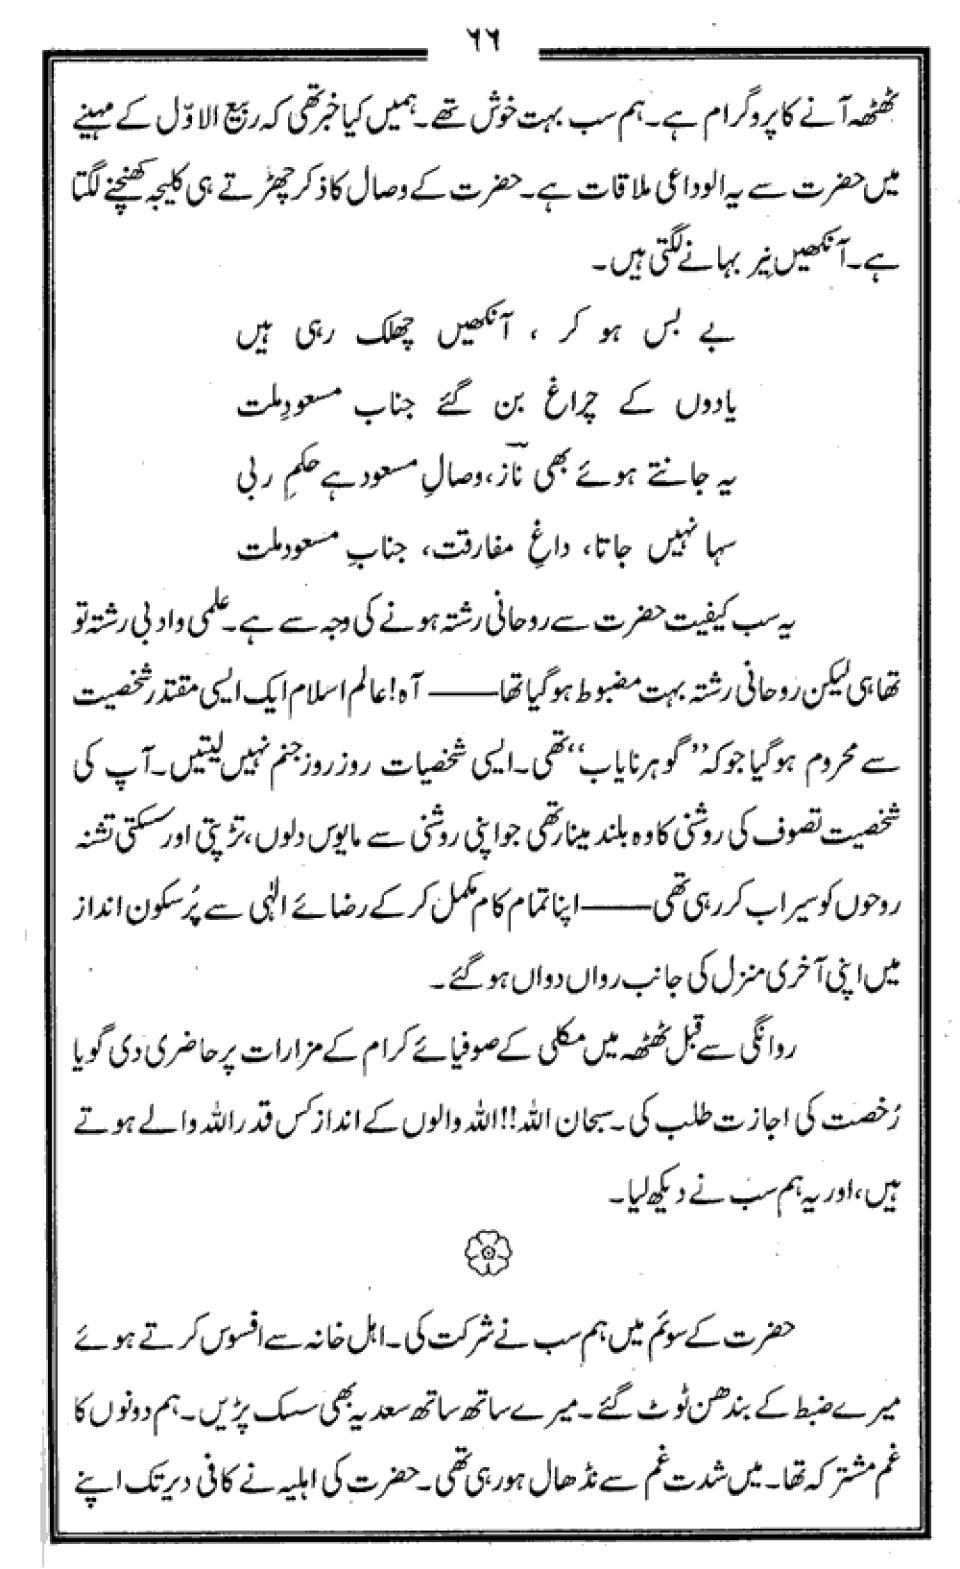 ۶۶
ٹھٹھہ آنے کا پروگرام ہے۔ ہم سب بہت خوش تھے۔ ہمیں کیا خبر تھی کہ ربیع الاوّل کے مہینے
میں حضرت سے یہ الوداعی ملاقات ہے۔ حضرت کے وصال کا ذکر چھڑتے ہی کلیجہ کھنچنے لگتا
ہے۔ آنکھیں نِیر بہانے لگتی ہیں۔
بے بس ہو کر ، آنکھیں چھلک رہی ہیں
یادوں کے چراغ بن گئے جناب مسعودِ ملت
یہ جانتے ہوئے بھی نازؔ، وصالِ مسعود ہے حکمِ ربی
سہا نہیں جاتا، داغِ مفارقت، جنابِ مسعود ملت
یہ سب کیفیت حضرت سے روحانی رشتہ ہونے کی وجہ سے ہے۔ علمی و ادبی رشتہ تو
تھا ہی لیکن روحانی رشتہ بہت مضبوط ہو گیا تھا—— آہ! عالم اسلام ایک ایسی مقتدر شخصیت
سے محروم ہو گیا جو کہ ”گوہر نایاب“ تھی۔ ایسی شخصیات روز روز جنم نہیں لیتیں۔ آپ کی
شخصیت تصوف کی روشنی کا وہ بلند مینار تھی جو اپنی روشنی سے مایوس دلوں، تڑپتی اور سسکتی تشنہ
روحوں کو سیراب کر رہی تھی—— اپنا تمام کام مکمل کر کے رضائے الٰہی سے پُر سکون انداز
میں اپنی آخری منزل کی جانب رواں دواں ہو گئے۔
روانگی سے قبل ٹھٹھہ میں مکلی کے صوفیائے کرام کے مزارات پر حاضری دی گویا
رُخصت کی اجازت طلب کی۔ سبحان اللہ!! اللہ والوں کے انداز کس قدر اللہ والے ہوتے
ہیں، اور یہ ہم سب نے دیکھ لیا۔
حضرت کے سوئم میں ہم سب نے شرکت کی۔ اہل خانہ سے افسوس کرتے ہوئے
میرے ضبط کے بندھن ٹوٹ گئے۔ میرے ساتھ ساتھ سعدیہ بھی سسک پڑیں۔ ہم دونوں کا
غم مشترکہ تھا۔ میں شدت غم سے نڈھال ہو رہی تھی۔ حضرت کی اہلیہ نے کافی دیر تک اپنے